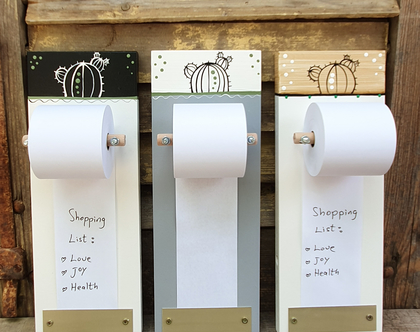 Shopping
List:
Love
Joy
Health
Shopping
List:
Love
Joy
Health